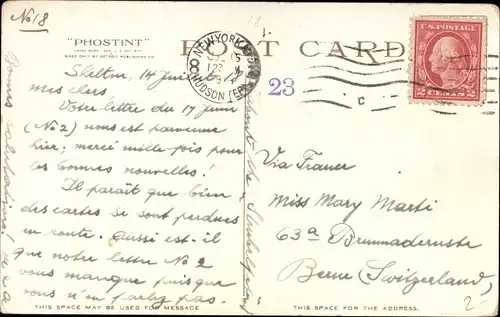 No 18
"PHOSTINT"
POST CARD
MADE ONLY BY DETROIT PUBLISHING CO.
NEW YORK
HUDSON TER
23
U.S. POSTAGE
2 CENTS 2
Shelton, 14 Juin
mes chers
Votre lettre du 17 Juin
(No 2) nous est parvenue
hier; merci mille fois pour
les bonnes nouvelles!
Il paraît que bien
des cartes se sont perdues
en route. Aussi est-il
que notre lettre No 2
vous manque puisque
vous n'en parlez pas.
Bonnes salutations!
Via France
Miss Mary Marti
63a
Berne (Switzerland)
2
THIS SPACE MAY BE USED FOR MESSAGE
THIS SPACE IS FOR THE ADDRESS